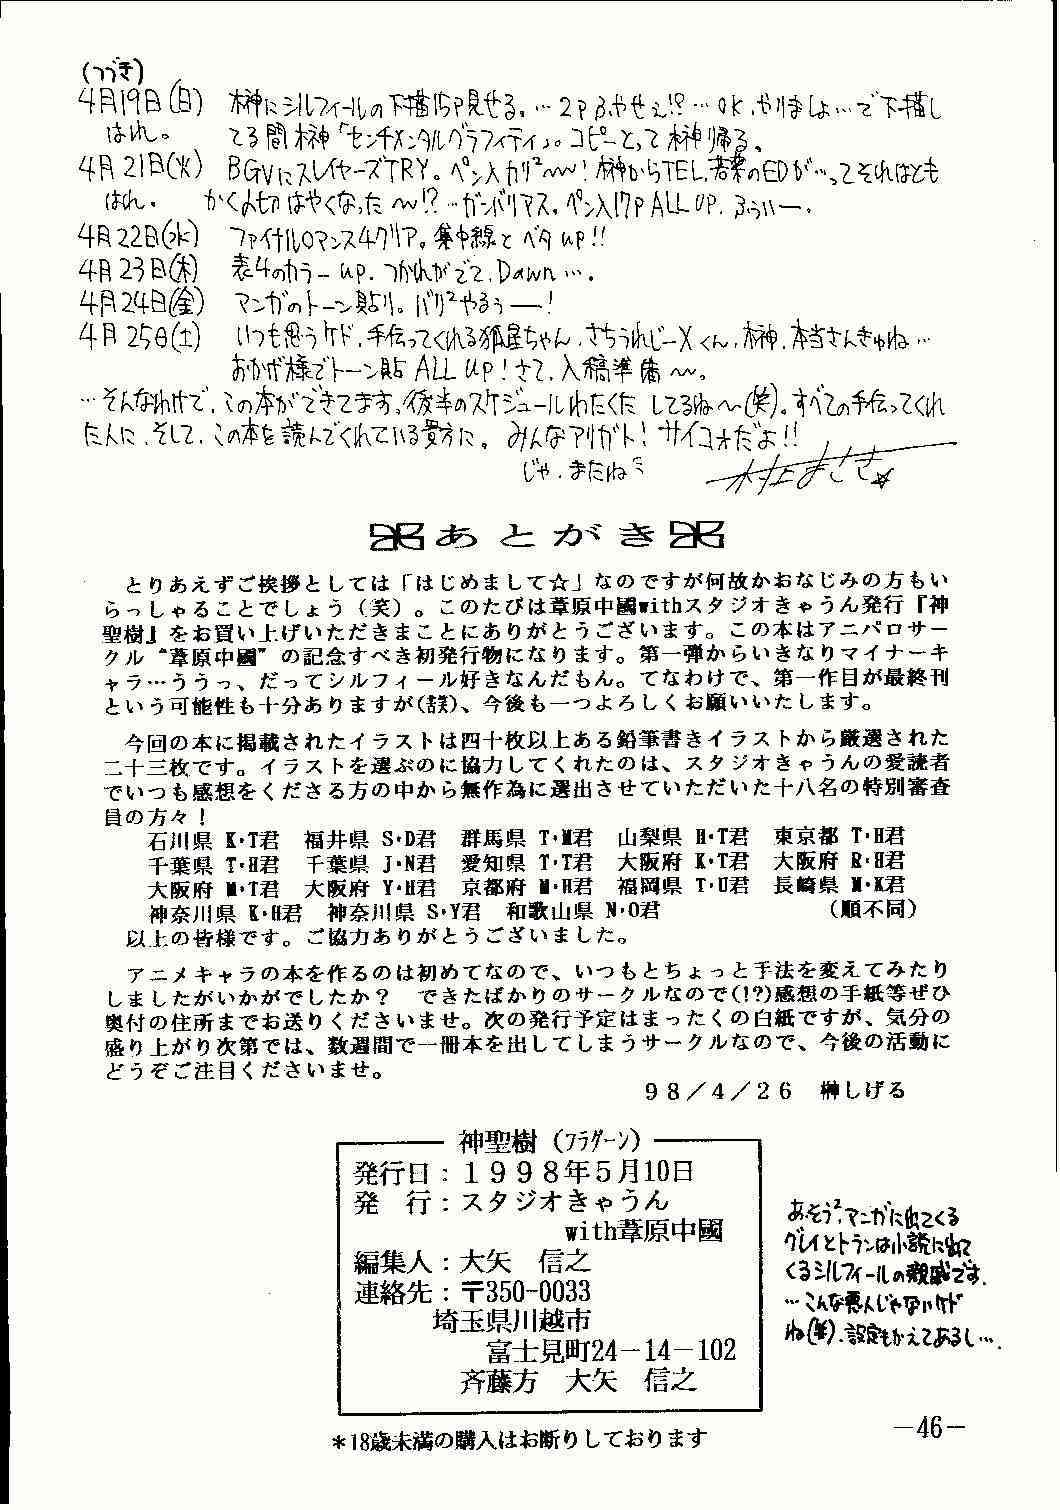 (つづき)
4月19日(日) 榊にシルフィールの下描15P見せる。…2Pふやせぇ!?…OK.やりましょ…で下描し
はれ。 てる間榊「センチメンタルグラフィティ」。コピーとって榊帰る。
4月21日(火) BGVにスレイヤーズTRY。ペン入カリ²〜〜!榊からTEL.若菜のEDが…ってそれはとも
はれ。 かく〆切はやくなった〜!?…ガンバリマス。ペン入17P ALL UP. ふぅぃー.
4月22日(水) ファイナルロマンス4クリア。集中線とベタup!!
4月23日(木) 表4のカラーup. つかれがでて、Dawn….
4月24日(金) マンガのトーン貼り。バリ²やるぅー!
4月25日(土) いつも思うケド、手伝ってくれる狐星ちゃん、さちうれじーXくん、榊、本当さんきゅね…
おかげ様でトーン貼ALL UP!さて、入稿準備〜。
…そんなわけで、この本ができてます。後半のスケジュールわたくた してるね〜(笑)。すべての手伝ってくれ
た人に、そして、この本を読んでくれている貴方に。みんなアリガト!サイコォだよ!!
じゃ、またね
あとがき
とりあえずご挨拶としては「はじめまして☆」なのですが何故かおなじみの方もい
らっしゃることでしょう(笑)。このたびは葦原中國withスタジオきゃうん発行『神
聖樹』をお買い上げいただきまことにありがとうございます。この本はアニパロサー
クル“葦原中國”の記念すべき初発行物になります。第一弾からいきなりマイナーキ
ャラ…ううっ、だってシルフィール好きなんだもん。てなわけで、第一作目が最終刊
という可能性も十分ありますが(読)、今後も一つよろしくお願いいたします。
今回の本に掲載されたイラストは四十枚以上ある鉛筆書きイラストから厳選された
二十三枚です。イラストを選ぶのに協力してくれたのは、スタジオきゃうんの愛読者
でいつも感想をくださる方の中から無作為に選出させていただいた十八名の特別審査
員の方々!
石川県 K・T君 福井県 S・D君 群馬県 T・M君 山梨県 H・T君 東京都 T・H君
千葉県 T・H君 千葉県 J・N君 愛知県 T・T君 大阪府 K・T君 大阪府 R・H君
大阪府 M・T君 大阪府 Y・H君 京都府 M・H君 福岡県 T・U君 長崎県 M・K君
神奈川県 K・H君 神奈川県 S・Y君 和歌山県 N・O君 (順不同)
以上の皆様です。ご協力ありがとうございました。
アニメキャラの本を作るのは初めてなので、いつもとちょっと手法を変えてみたり
しましたがいかがでしたか? できたばかりのサークルなので(!?)感想の手紙等ぜひ
奥付の住所までお送りくださいませ。次の発行予定はまったくの白紙ですが、気分の
盛り上がり次第では、数週間で一冊本を出してしまうサークルなので、今後の活動に
どうぞご注目くださいませ。
98/4/26 榊しげる
神聖樹(フラグーン)
発行日:1998年5月10日
発 行:スタジオきゃうん
with葦原中國
編集人:大矢 信之
連絡先:〒350-0033
埼玉県川越市
富士見町24-14-102
斉藤方 大矢 信之
*18歳未満の購入はお断りしております
あ、そう²、マンガに出てくる
グレイとトランは小説に出て
くるシルフィールの親戚です.
…こんな悪人じゃないケド
ね(笑).設定もかえてあるし….
-46-